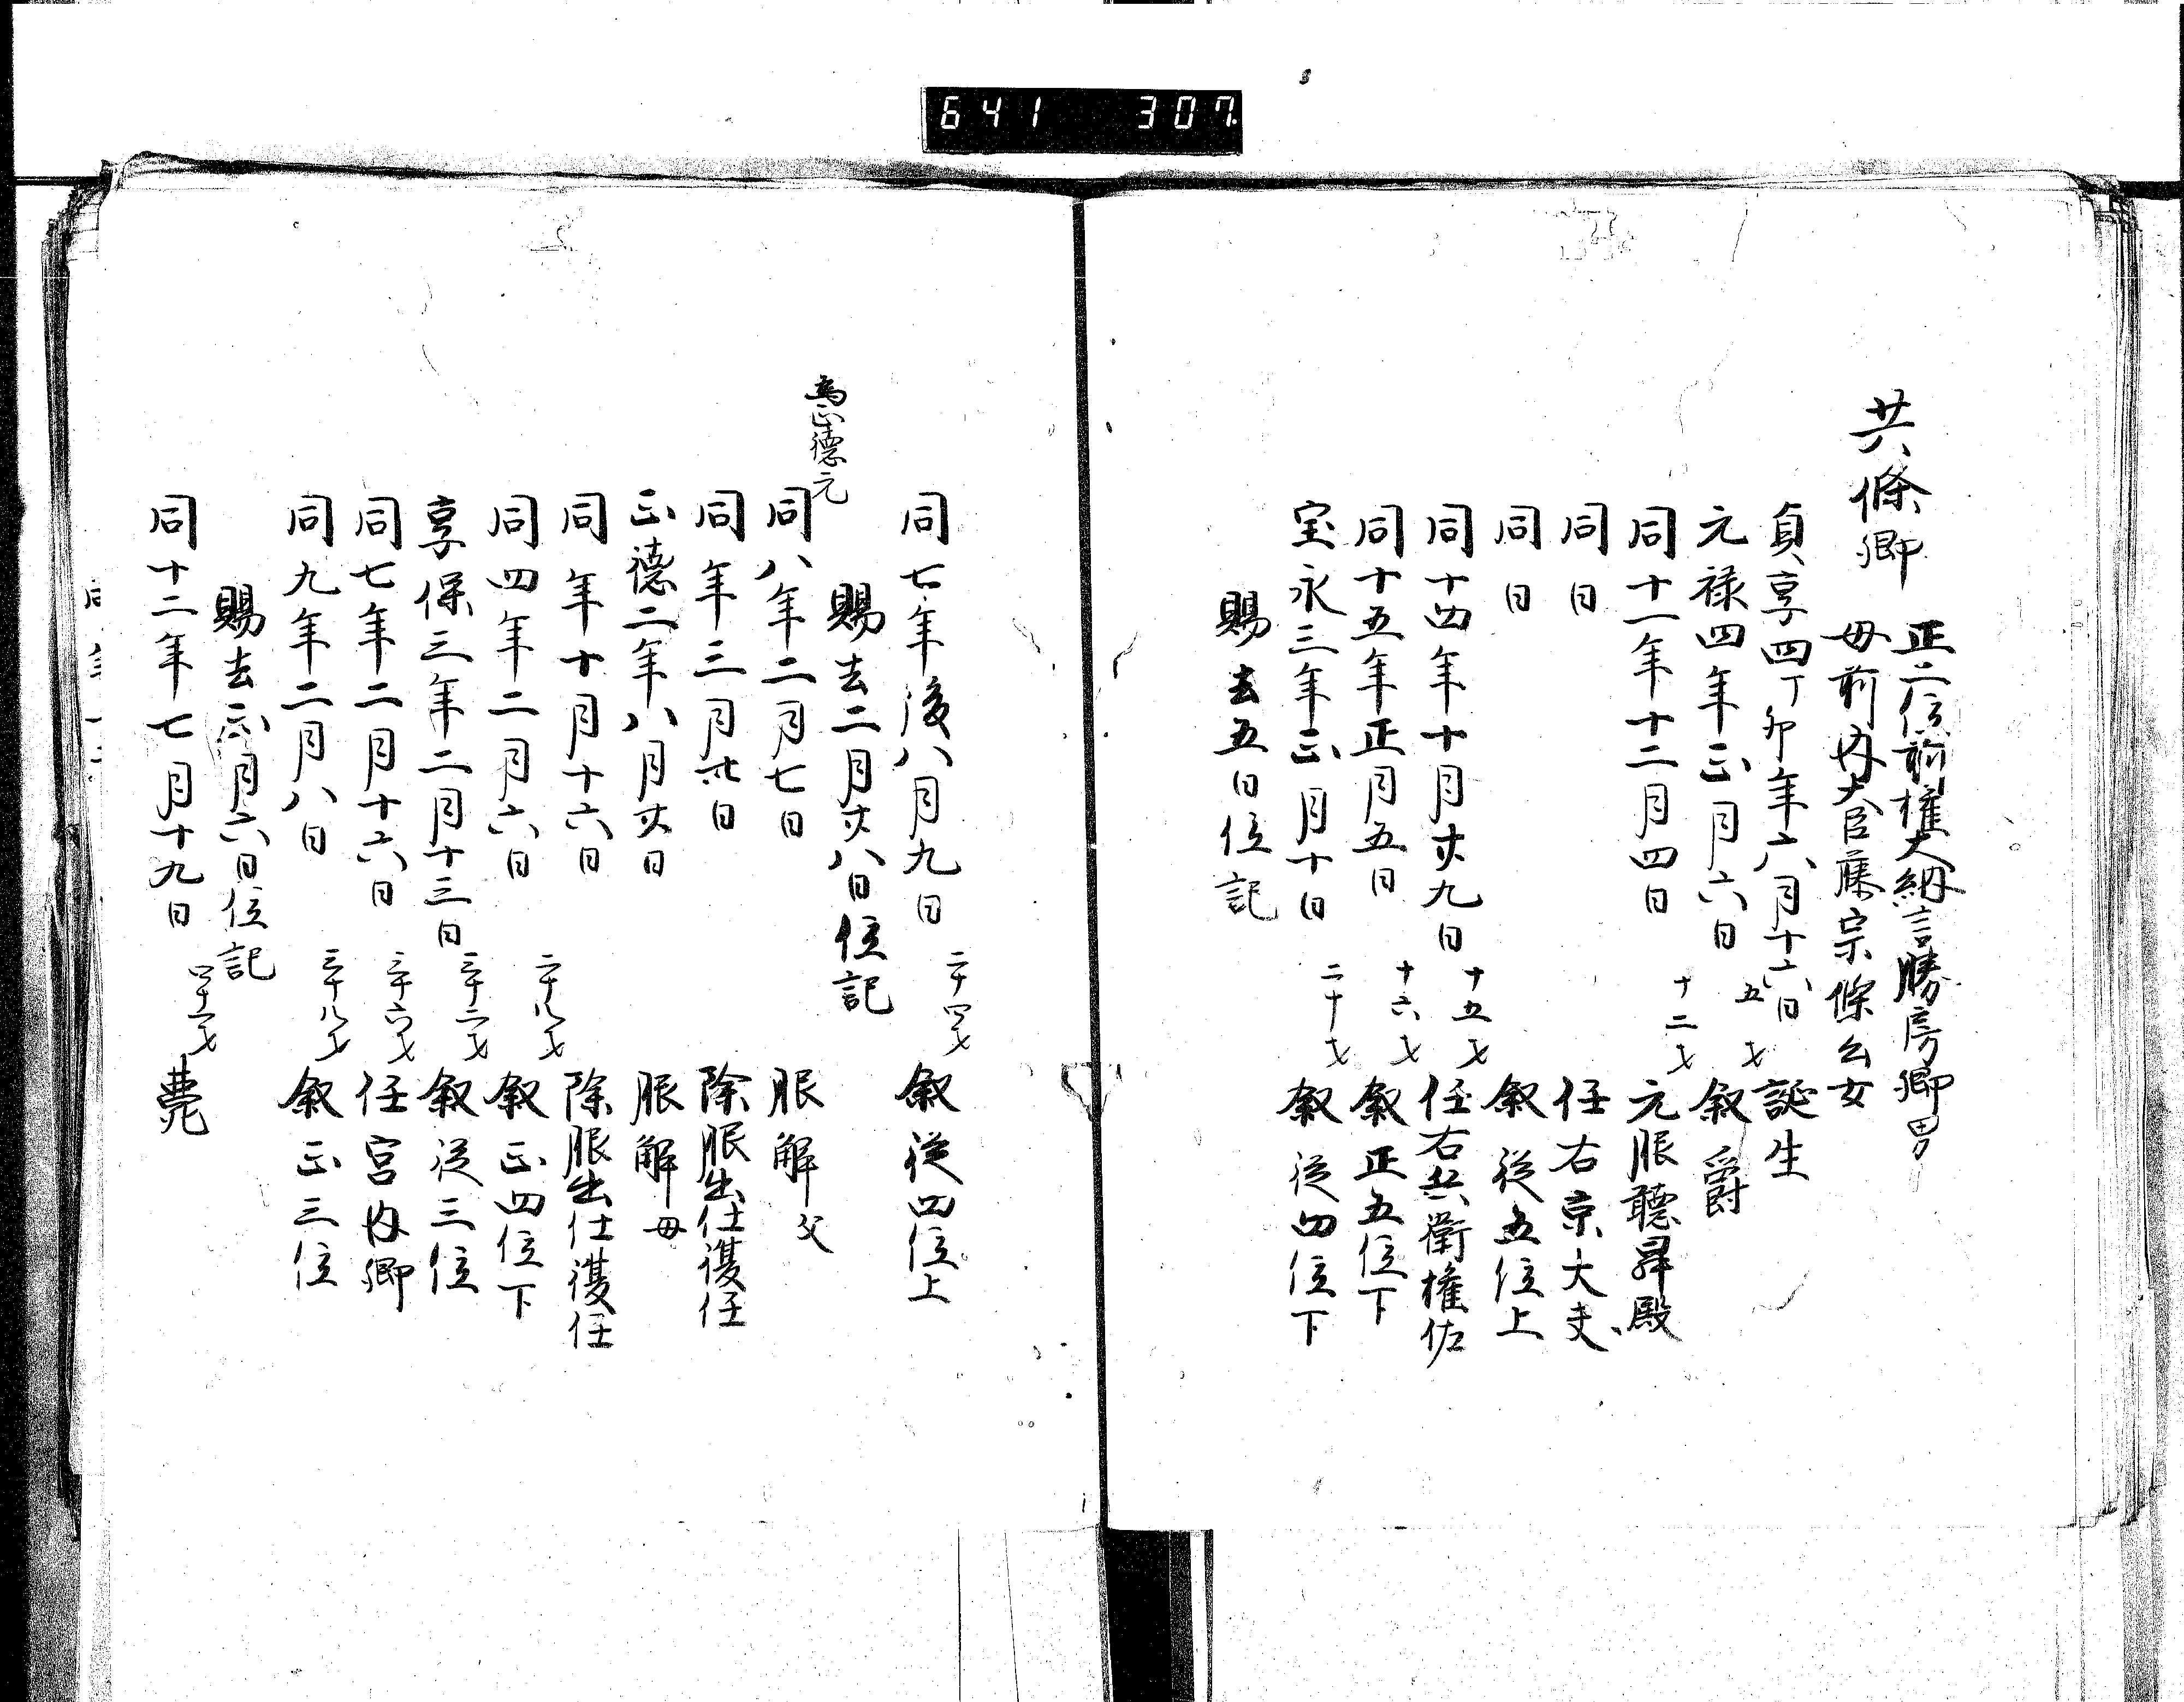 641 307
共條卿
正二位前権大納言勝房卿男
母前内大臣藤宗條公女
貞享四丁卯年六月十六日 誕生
元禄四年正月六日 五才 叙爵
同十一年十二月四日 十二才 元服聴昇殿
同日 任右京大夫
同日 叙従五位上
同十四年十月廿九日 十五才 任右兵衛権佐
同十五年正月五日 十六才 叙正五位下
宝永三年正月十日 二十才 叙従四位下
賜去五日位記
同七年後八月九日 二十四才 叙従四位上
賜去二月廿八日位記
為正徳元
同八年二月七日 服解父
同年三月廿日 除服出仕復任
正徳二年八月廿日 服解母
同年十月十六日 除服出仕復任
同四年二月六日 二十八才 叙正四位下
享保三年二月十三日 三十二才 叙従三位
同七年二月十六日 三十六才 任宮内卿
同九年二月八日 三十八才 叙正三位
賜去正月六日位記
同十二年七月十九日 四十一才 薨